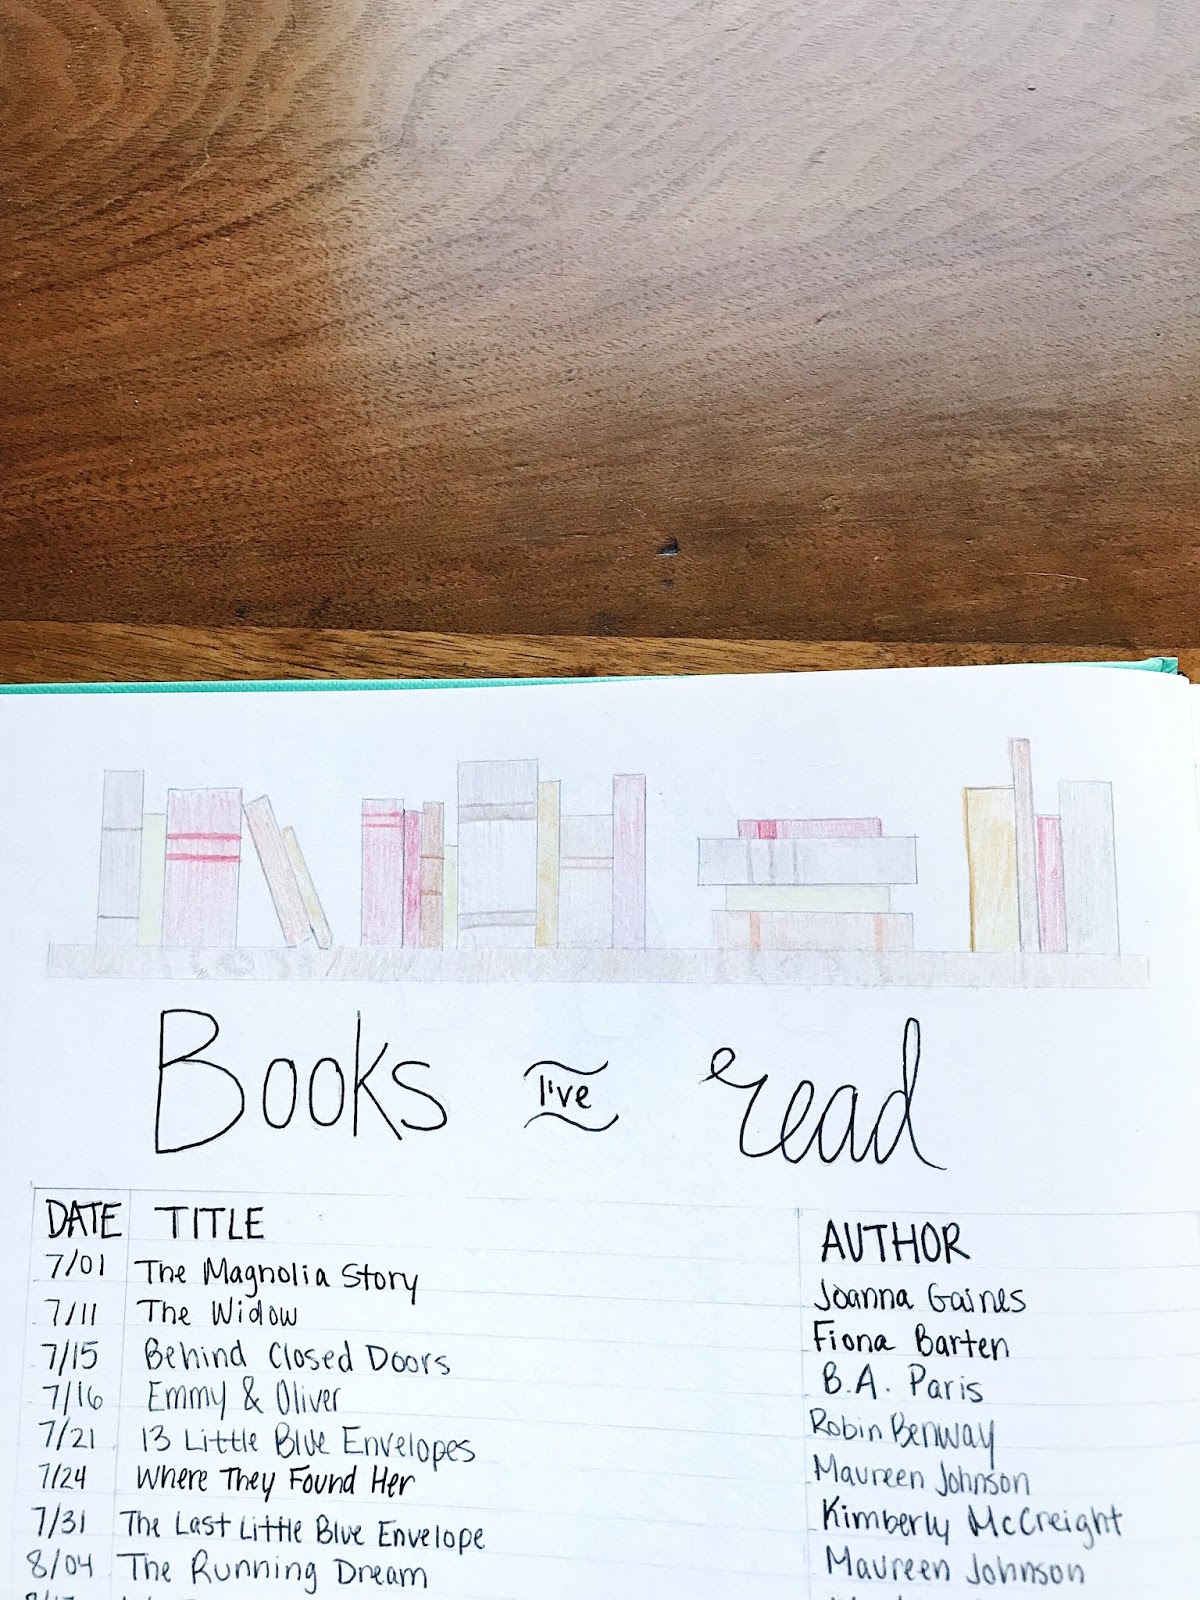 Books I've read
DATE TITLE AUTHOR
7/01 The Magnolia Story Joanna Gaines
7/11 The Widow Fiona Barten
7/15 Behind Closed Doors B.A. Paris
7/16 Emmy & Oliver Robin Benway
7/21 13 Little Blue Envelopes Maureen Johnson
7/24 Where They Found Her Kimberly McCreight
7/31 The Last Little Blue Envelope Maureen Johnson
8/04 The Running Dream